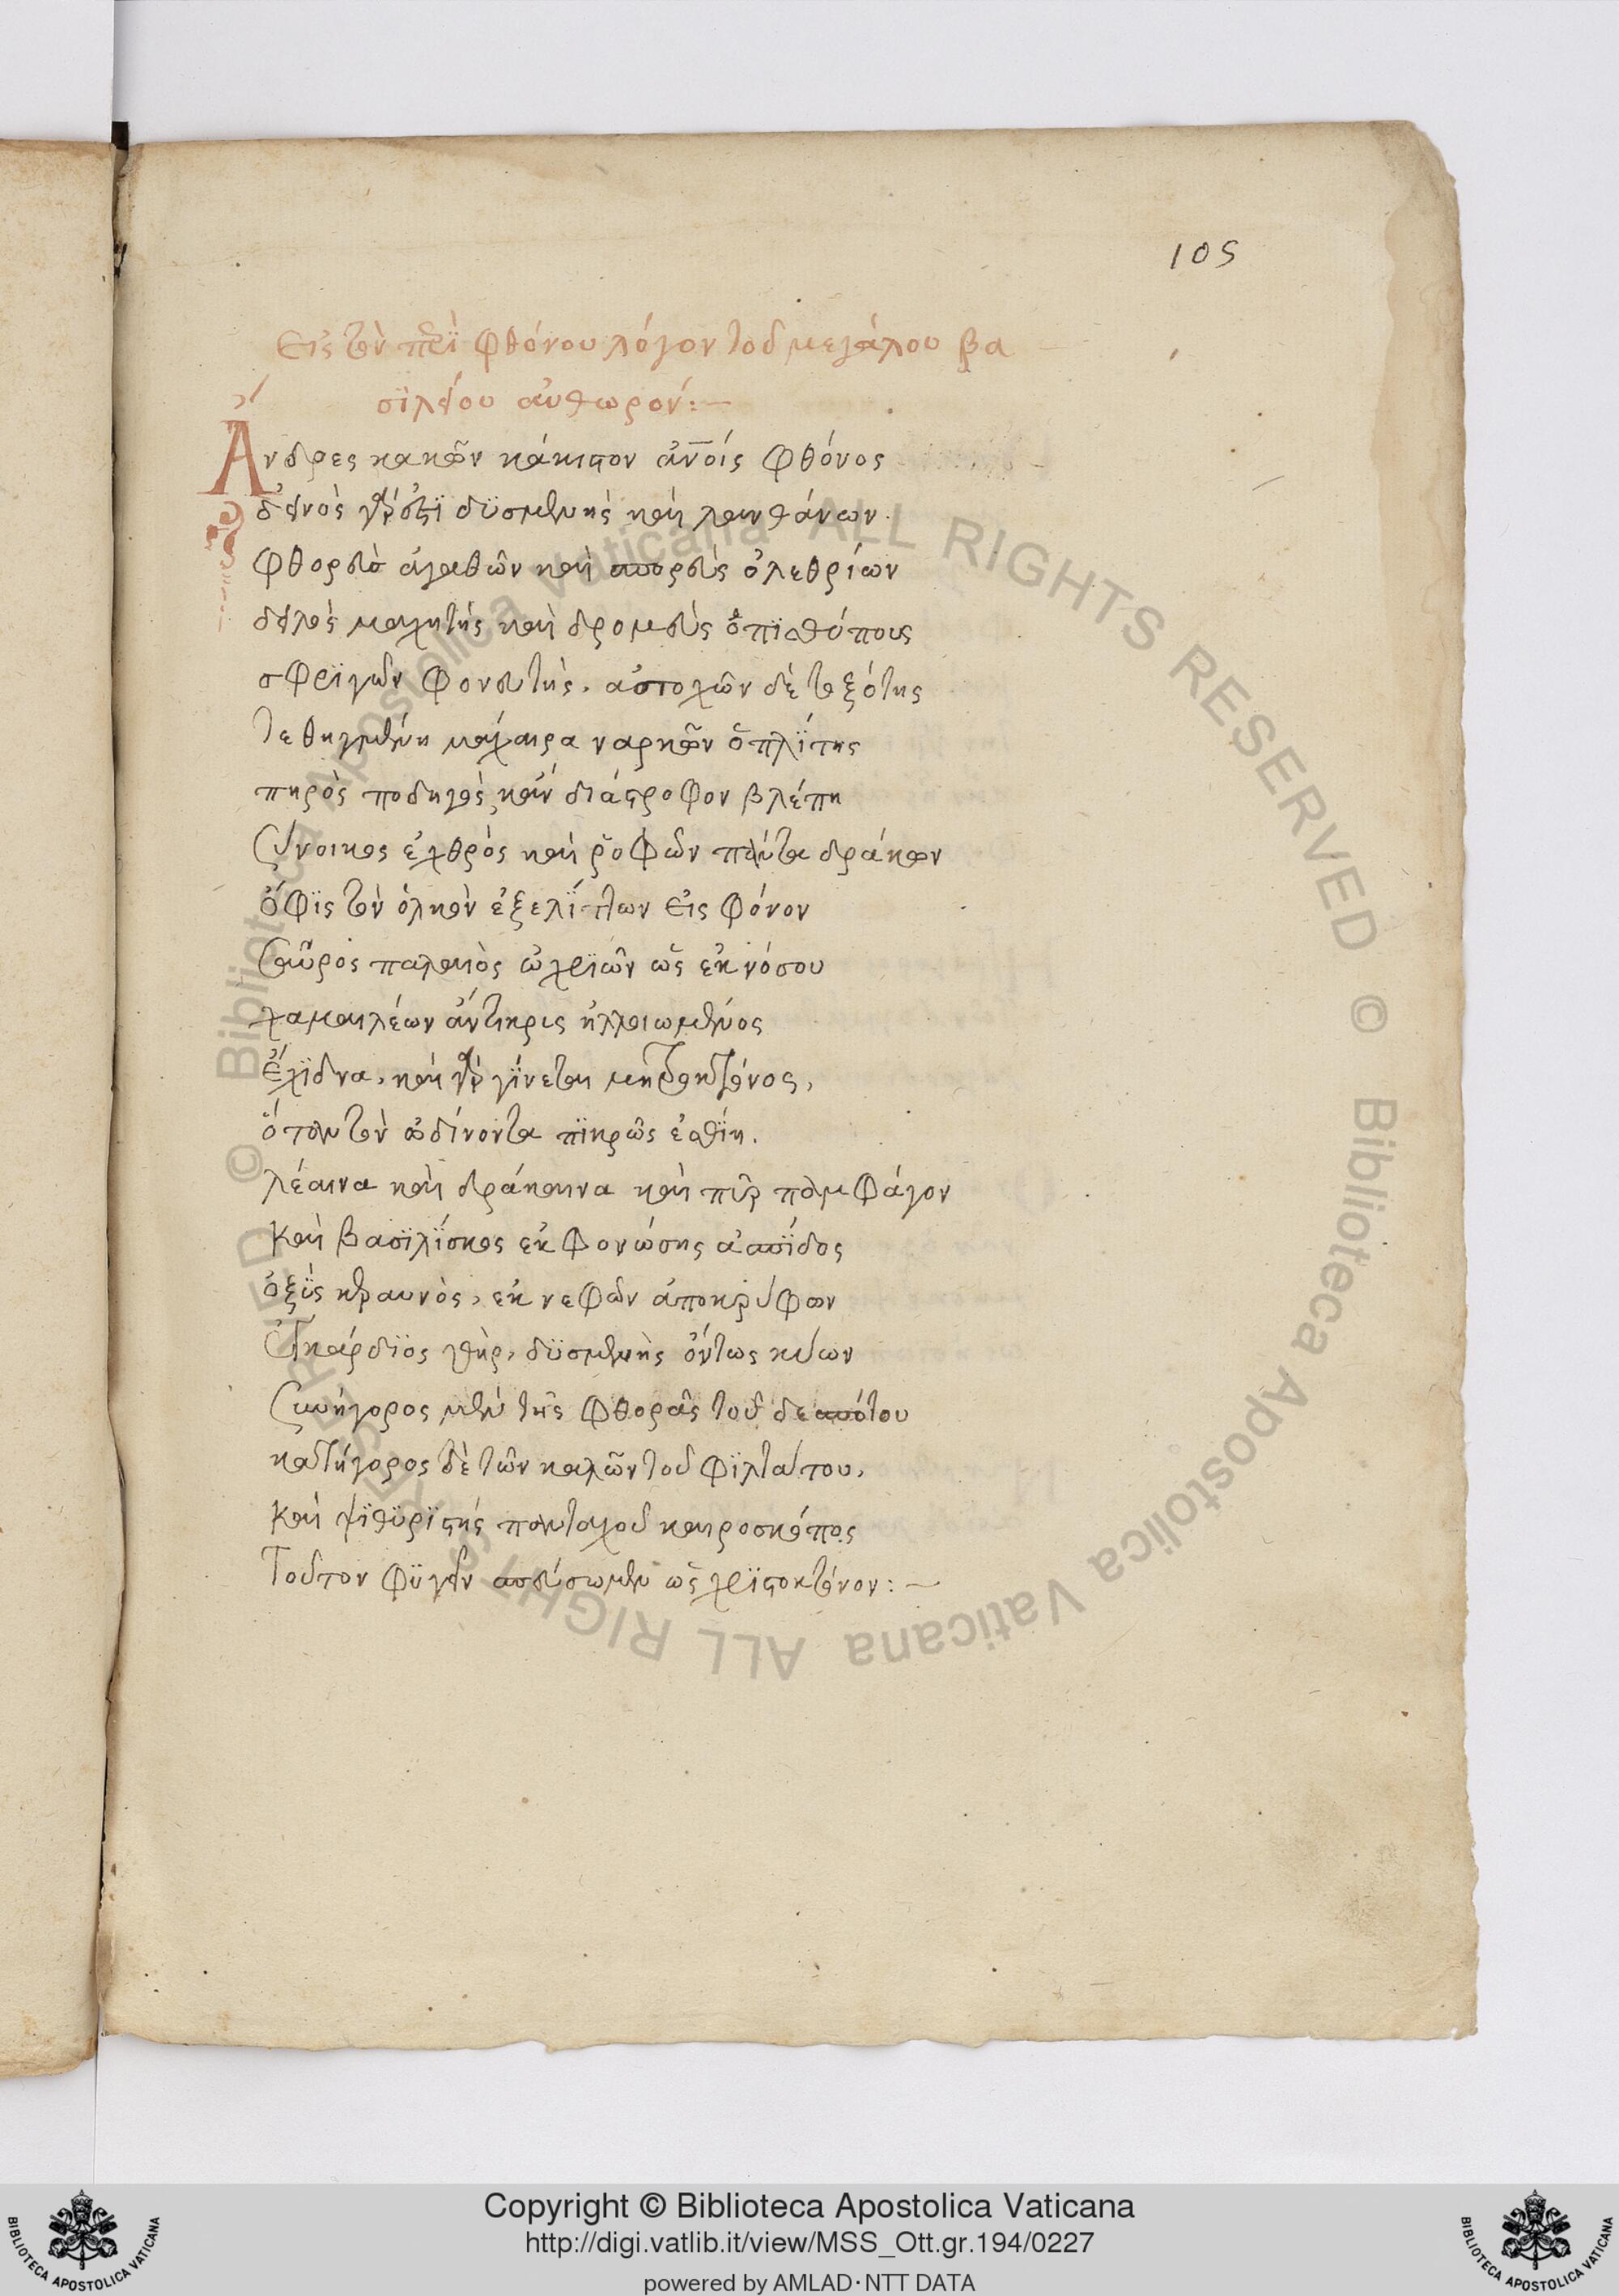 105
Εἰς τὸν περὶ φθόνου λόγον τοῦ μεγάλου βα
σϊλείου αὐθωρόν:—
Ἄνδρες κακῶν κάκιστον ἀν̅οίς φθόνος
δεινὸς γάρ ἐστϊ δϋσμενὴς καὶ λανθάνων.
φθορεὺς ἀγαθῶν καὶ σπορεὺς ὀλεθρίων
δειλὸς μαχητὴς καὶ δρομεὺς ὀπϊσθόπους
σφρϊγῶν φονευτὴς, ἀστοχῶν δὲ τοξότης
τεθηγμένη μάχαιρα ναρκῶν ὁπλΐτης
πηρὸς ποδηγὸς κἂν διάστροφον βλέπη
σύνοικος ἐχθρὸς καὶ ῥοφῶν πάντα δράκων
ὄφϊς τὸν ὁλκὸν ἐξελΐττων εἰς φόνον
σαῦρος παλαιὸς ὠχρϊῶν ὡς ἐκ νόσου
χαμαιλέων ἄντικρις ἠλλοιωμένος
ἔχϊδνα, καὶ γὰρ γΐνεται μητροκτόνος,
ὅταν τὸν ὠδίνοντα πϊκρῶς ἐσθΐη.
λέαινα καὶ δράκαινα καὶ πῦρ παμφάγον
καὶ βασϊλΐσκος ἐκ φονώσης ἀσπΐδος
ὀξϋς κεραυνὸς, ἐκ νεφῶν ἀποκρύφων
ἐγκάρδϊος θὴρ, δϋσμενὴς ὄντως κύων
συνήγορος μὲν τῆς φθορᾶς τοῦ δεσπότου
κατήγορος δὲ τῶν καλῶν τοῦ φϊλτάτου,
καὶ ψϊθϋρϊστὴς πανταχοῦ καιροσκόπος
Τοῦτον φϋγεῖν σπεύσωμεν ὡς χρϊστοκτόνον:—
Copyright © Biblioteca Apostolica Vaticana
http://digi.vatlib.it/view/MSS_Ott.gr.194/0227
powered by AMLAD·NTT DATA
BIBLIOTECA APOSTOLICA VATICANA
BIBLIOTECA APOSTOLICA VATICANA
© Biblioteca Apostolica Vaticana ALL RIGHTS RESERVED © Biblioteca Apostolica Vaticana ALL RIGHTS RESERVED